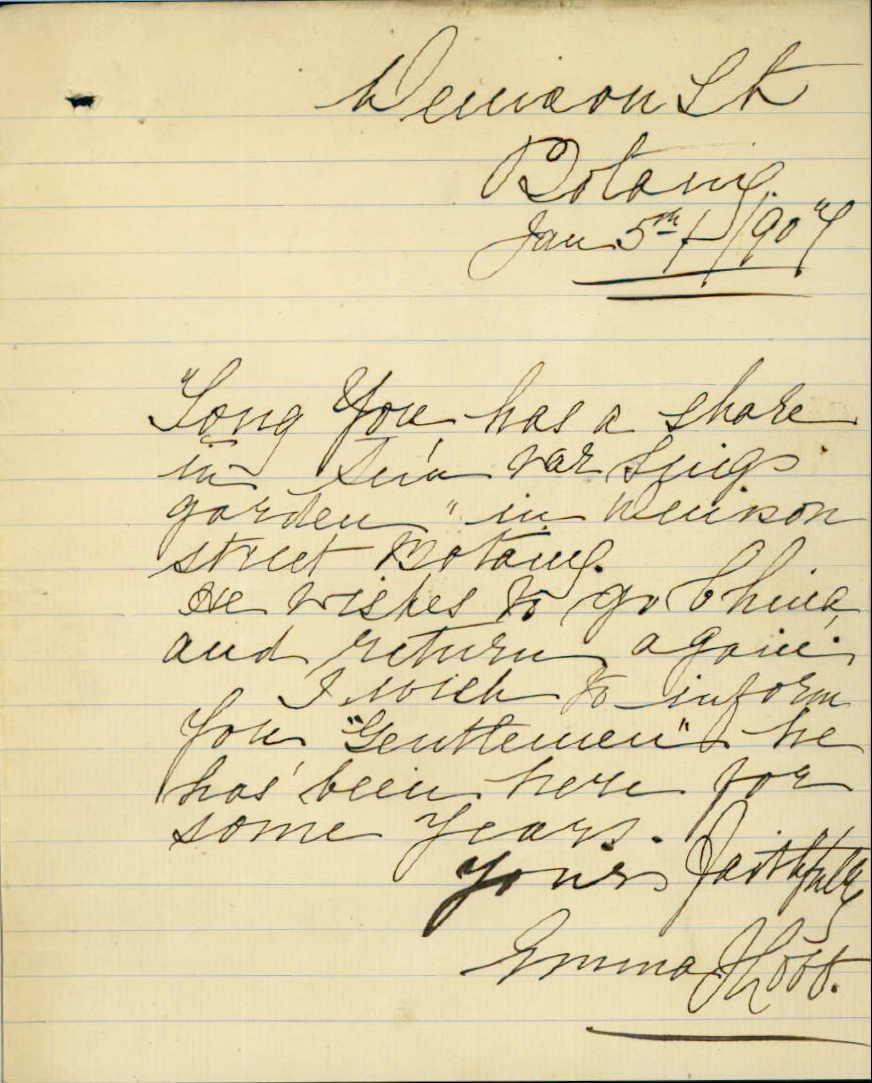 Denison St
Botany.
Jan 5th / 1907
Long You has a share
in Sin War Sings
garden" in Denison
street Botany.
He wishes to go China
and return again.
I wich to inform
you "Gentlemen" he
has been here for
some years.
Your's Faithfully
Emma